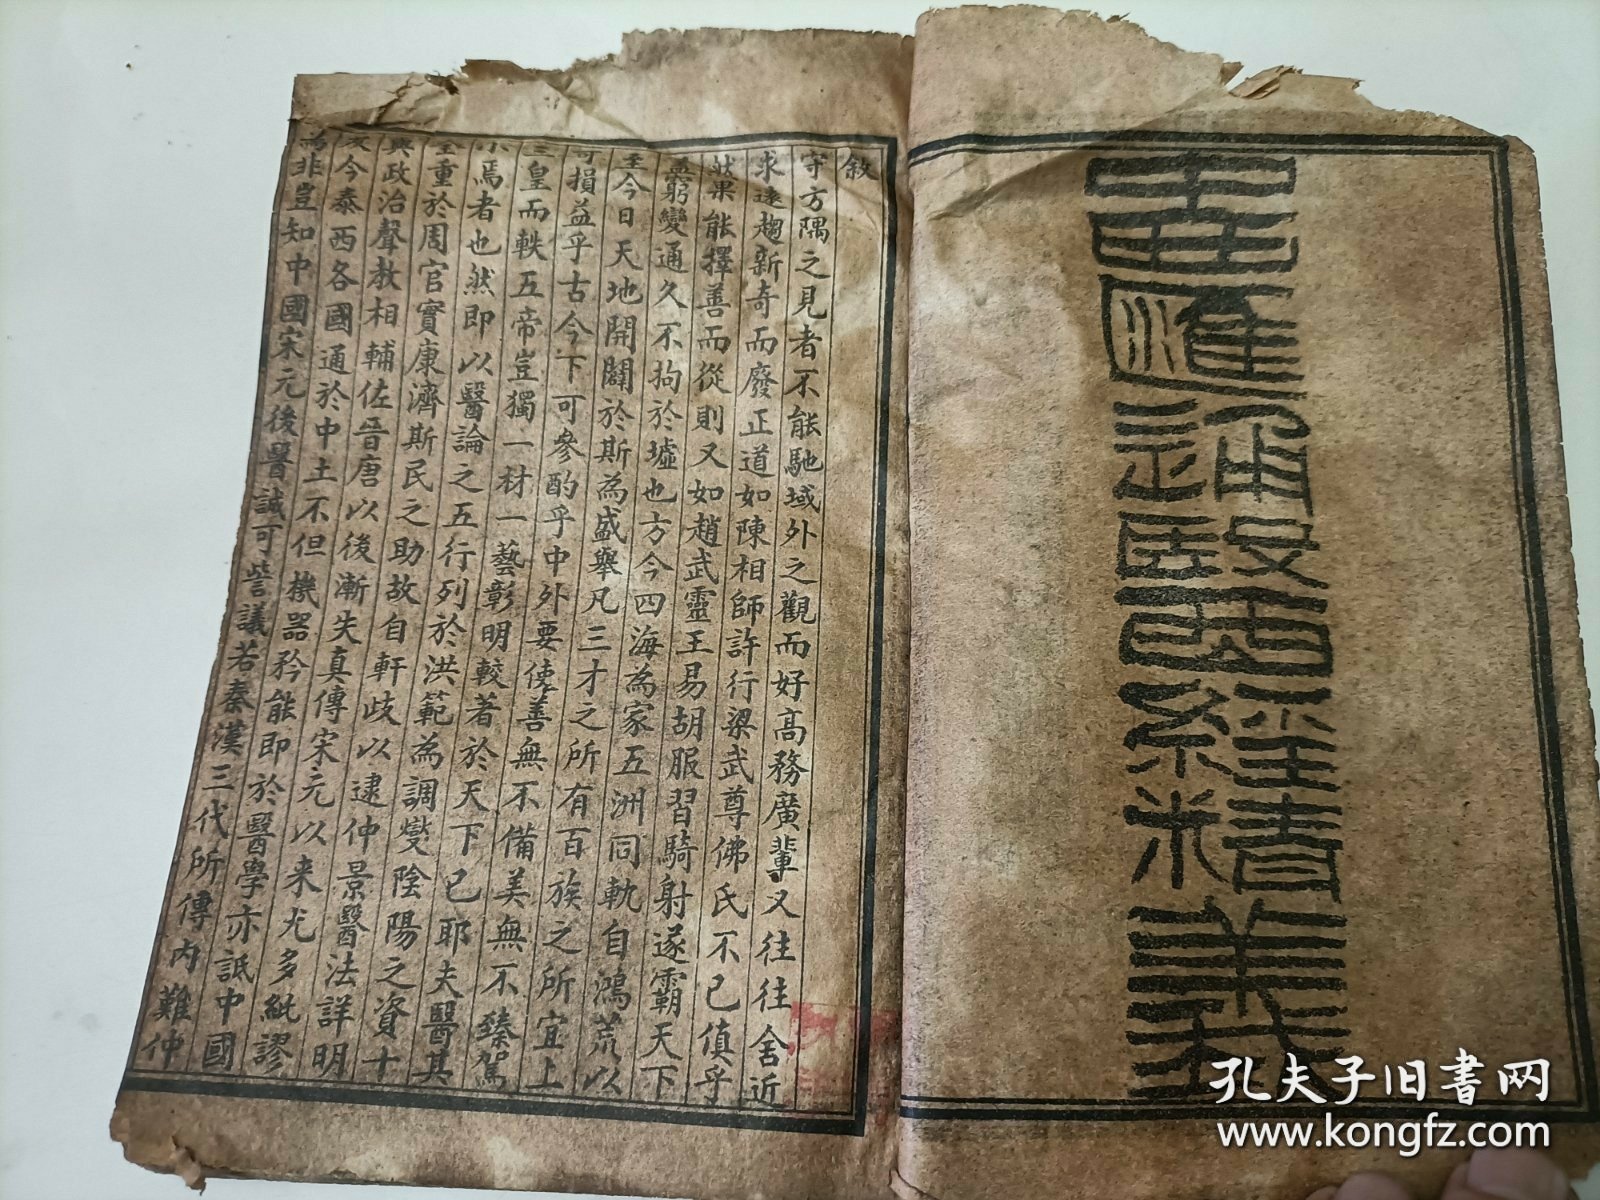 中西匯通醫經精義
敘
守方隅之見者不能馳域外之觀而好高務廣輩又往往舍近
求遠趨新奇而廢正道如陳相師許行梁武尊佛氏不已傎乎
然果能擇善而從則又如趙武靈王易胡服習騎射遂霸天下
無窮變通久不拘於墟也方今四海為家五洲同軌自鴻荒以
至今日天地開闢於斯為盛舉凡三才之所有百族之所宜上
可損益乎古今下可參酌乎中外要使善無不備美無不臻駕
三皇而軼五帝豈獨一材一藝彰明較著於天下已耶夫醫其
小焉者也然即以醫論之五行列於洪範為調燮陰陽之資十
全重於周官實康濟斯民之助故自軒歧以逮仲景醫法詳明
與政治聲教相輔佐晉唐以後漸失真傳宋元以来尤多紕謬
今泰西各國通於中土不但機器矜能即於醫學亦詆中國
為非豈知中國宋元後醫誠可訾議若秦漢三代所傳內難仲
孔夫子旧書网
www.kongfz.com